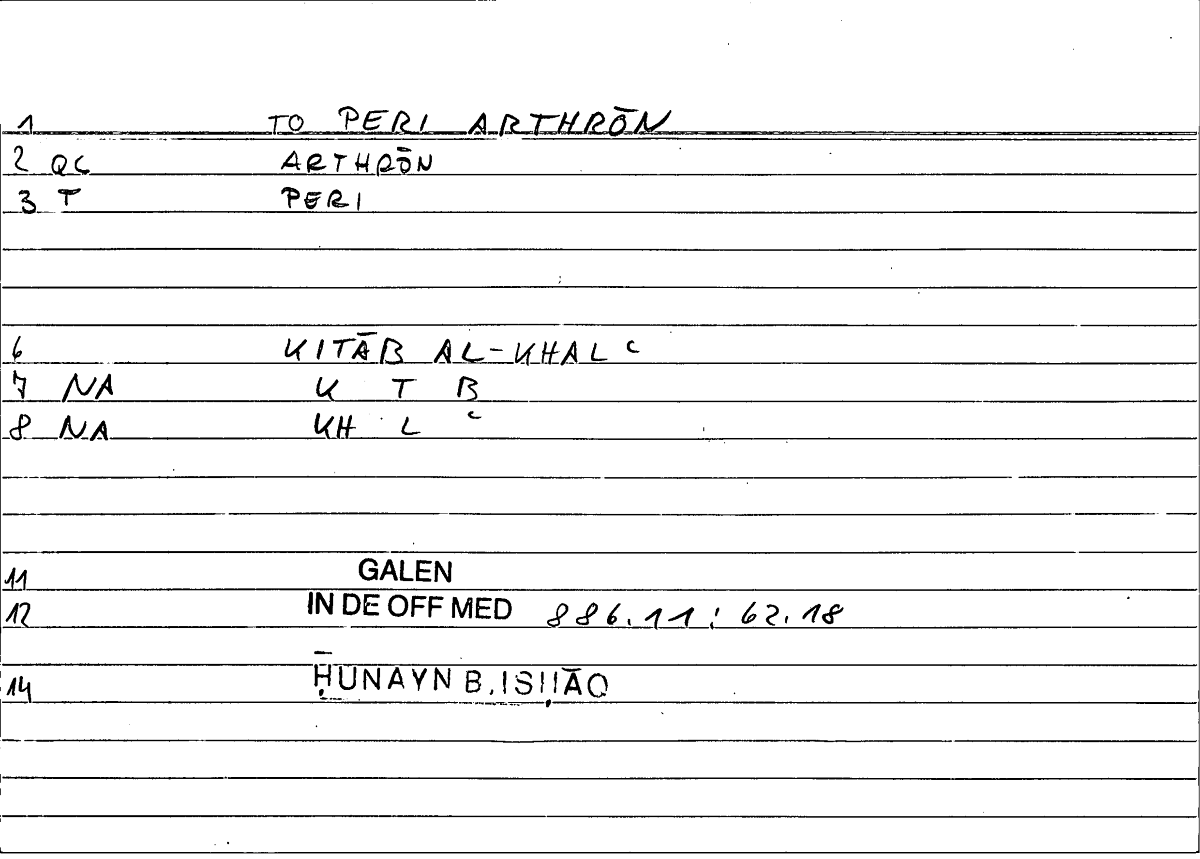 1 TO PERI ARTHRŌN
2 QC ARTHRŌN
3 T PERI
6 KITĀB AL-KHALʿ
7 NA K T B
8 NA KH L ʿ
11 GALEN
12 IN DE OFF MED 886.11 : 62.18
14 ḤUNAYN B. ISḤĀQ